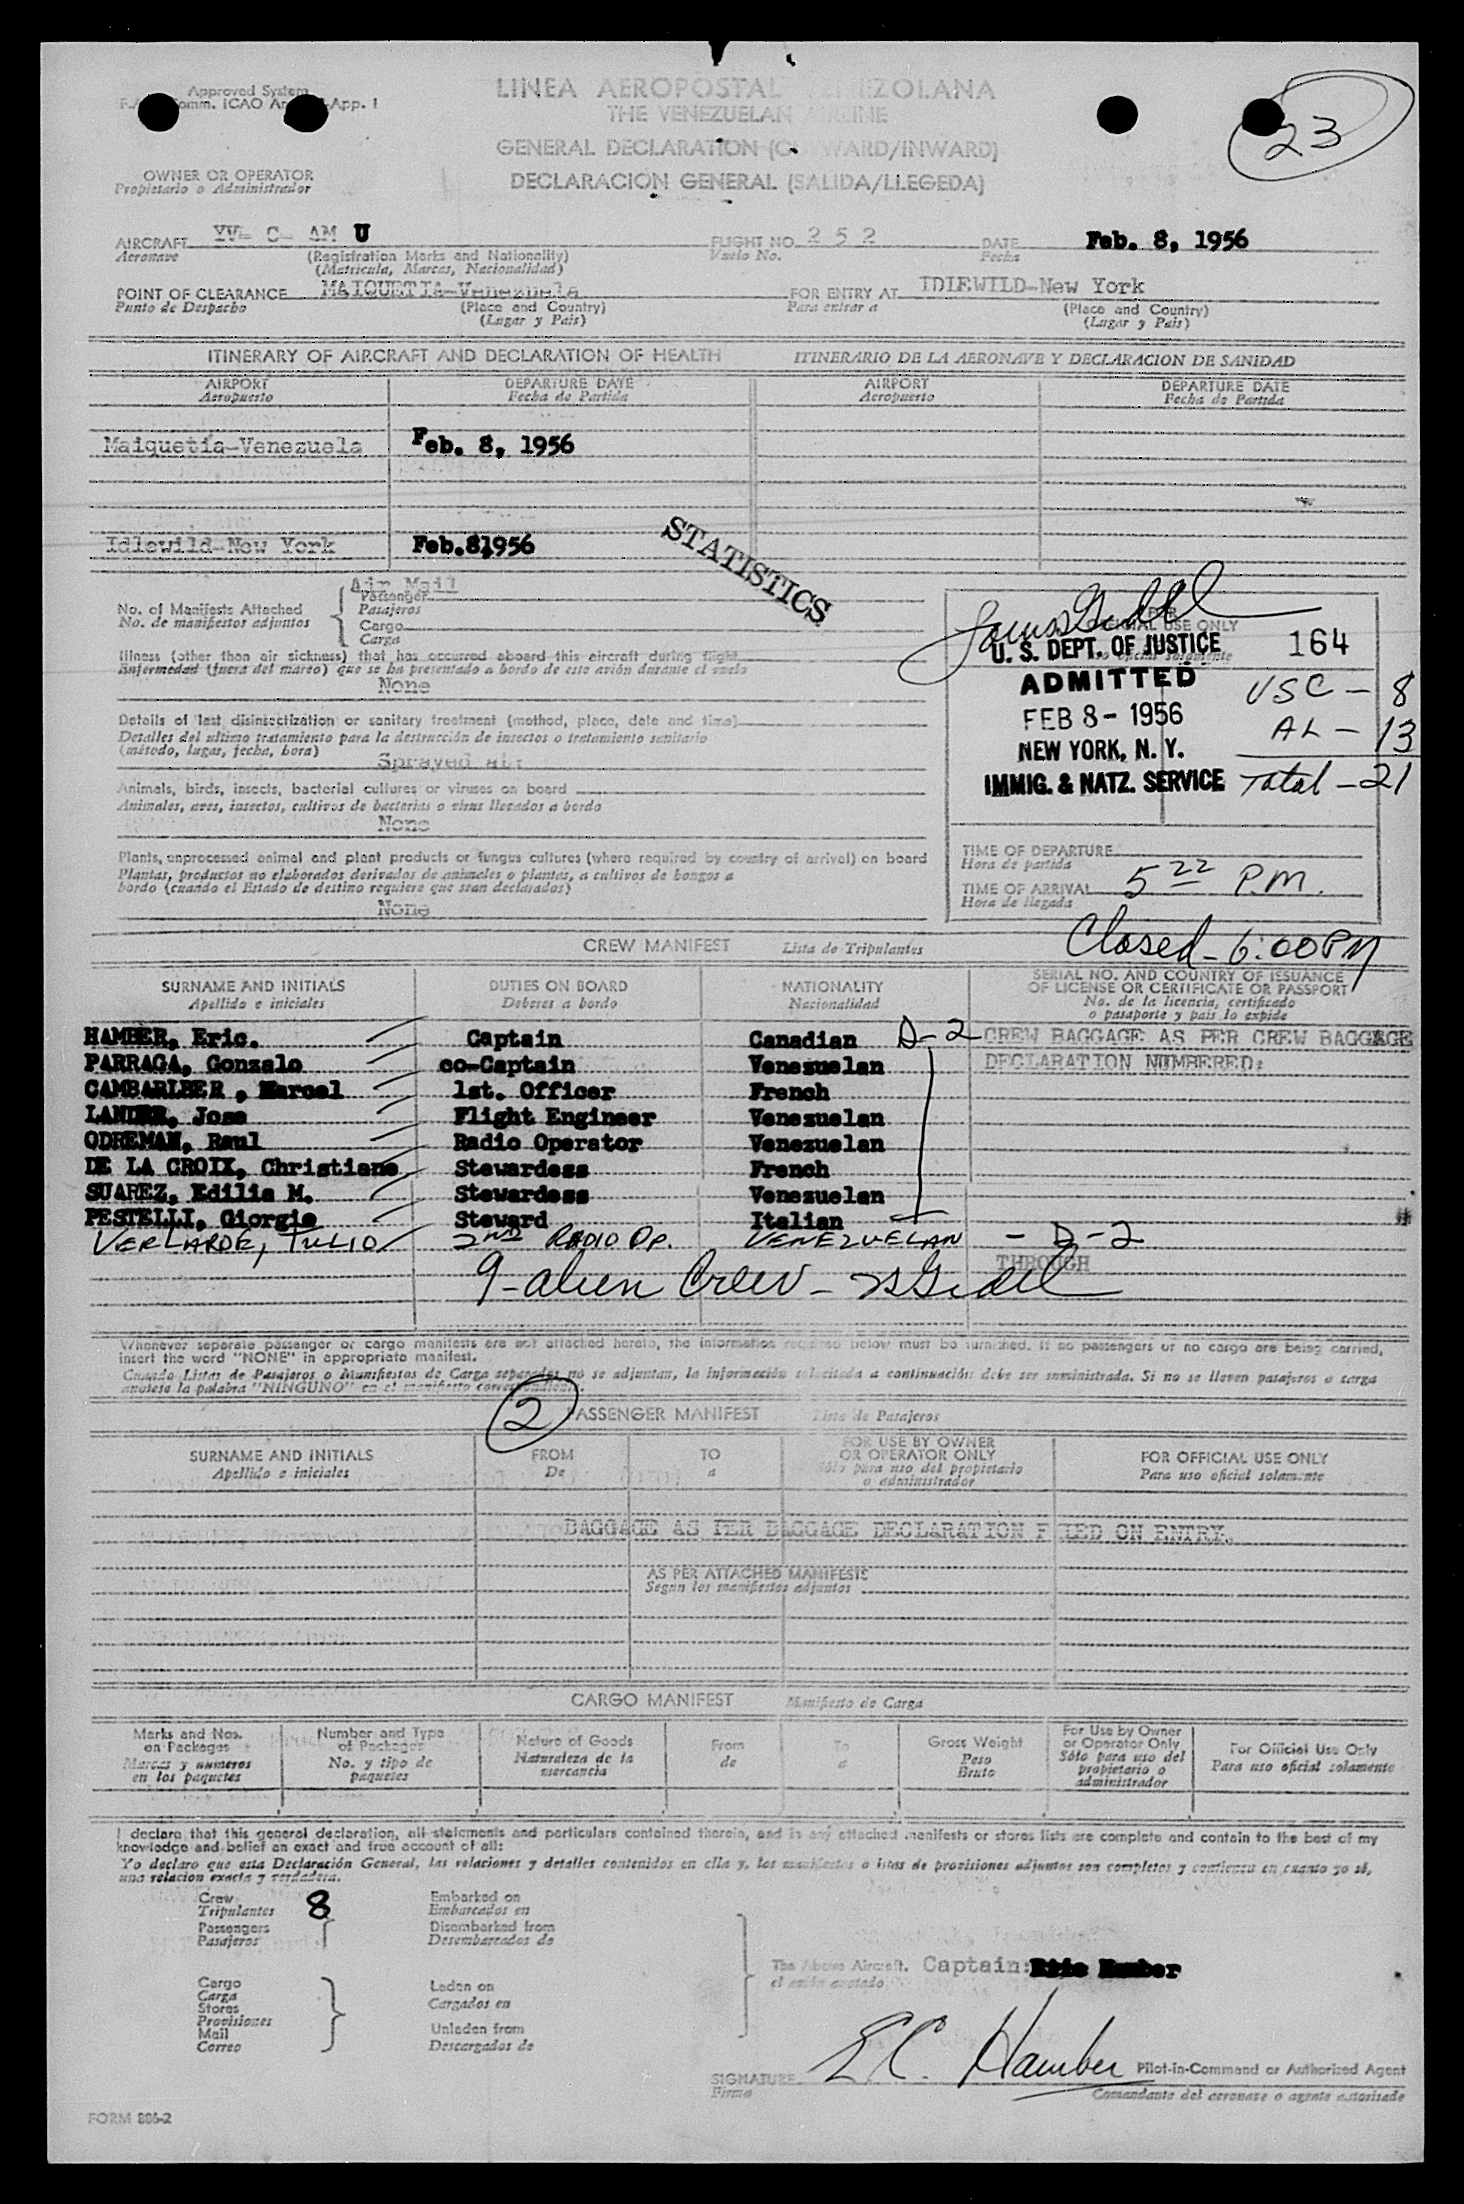 Approved System
Comm. ICAO App. 1
LINEA AEROPOSTAL VENEZOLANA
THE VENEZUELAN AIRLINE
GENERAL DECLARATION (OUTWARD/INWARD)
DECLARACION GENERAL (SALIDA/LLEGEDA)
23
OWNER OR OPERATOR
Propietario o Administrador
AIRCRAFT YV- C- AM U FLIGHT NO. 252 DATE Feb. 8, 1956
Aeronave (Registration Marks and Nationality) Vuelo No. Fecha
(Matricula, Marcas, Nacionalidad)
POINT OF CLEARANCE MAIQUETIA-Venezuela FOR ENTRY AT IDIEWILD-New York
Punto de Despacho (Place and Country) Para entrar a (Place and Country)
(Lugar y Pais) (Lugar y Pais)
ITINERARY OF AIRCRAFT AND DECLARATION OF HEALTH ITINERARIO DE LA AERONAVE Y DECLARACION DE SANIDAD
AIRPORT DEPARTURE DATE AIRPORT DEPARTURE DATE
Aeropuerto Fecha de Partida Aeropuerto Fecha de Partida
Maiquetía-Venezuela Feb. 8, 1956
Idlewild-New York Feb.8,1956
STATISTICS
Air Mail
No. of Manifests Attached Passenger
No. de manifiestos adjuntos Pasajeros
Cargo
Carga
Illness (other than air sickness) that has occurred aboard this aircraft during flight
Enfermedad (fuera del mareo) que se ha presentado a bordo de este avión durante el vuelo
None
Details of last disinsectization or sanitary treatment (method, place, date and time)
Detalles del ultimo tratamiento para la destrucción de insectos o tratamiento sanitario
(método, lugar, fecha, hora)
Sprayed air
Animals, birds, insects, bacterial cultures or viruses on board
Animales, aves, insectos, cultivos de bacterias o virus llevados a bordo
None
Plants, unprocessed animal and plant products or fungus cultures (where required by country of arrival) on board
Plantas, productos no elaborados derivados de animales o plantas, a cultivos de hongos a
bordo (cuando el Estado de destino requiere que sean declarados)
None
FOR
OFFICIAL USE ONLY
U. S. DEPT. OF JUSTICE 164
ADMITTED USC - 8
FEB 8 - 1956 AL - 13
NEW YORK, N. Y.
IMMIG. & NATZ. SERVICE Total - 21
TIME OF DEPARTURE
Hora de partida
TIME OF ARRIVAL 5 22 P.M.
Hora de llegada
Closed - 6:00 PM
CREW MANIFEST Lista de Tripulantes
SURNAME AND INITIALS DUTIES ON BOARD NATIONALITY SERIAL NO. AND COUNTRY OF ISSUANCE
OF LICENSE OR CERTIFICATE OR PASSPORT
Apellido e iniciales Deberes a bordo Nacionalidad No. de la licencia, certificado
o pasaporte y pais lo expide
HAMBER, Eric. Captain Canadian D-2 CREW BAGGAGE AS PER CREW BAGGAGE
PARRAGA, Gonzalo co-Captain Venezuelan DECLARATION NUMBERED:
CAMBARLBER, Marcel 1st. Officer French
LANDER, Jose Flight Engineer Venezuelan
ODREMAN, Raul Radio Operator Venezuelan
DE LA CROIX, Christiane Stewardess French
SUAREZ, Edilia M. Stewardess Venezuelan
PESTELLI, Giorgio Steward Italian
VERLARDE, TULIO 2ND RADIO OP. VENEZUELAN - D-2
THROUGH
9 - alien Crew -
Whenever separate passenger or cargo manifests are not attached hereto, the information required below must be furnished. If no passengers or no cargo are being carried,
insert the word "NONE" in appropriate manifest.
Cuando Listas de Pasajeros o Manifiestos de Carga separados no se adjuntan, la información solicitada a continuación debe ser suministrada. Si no se lleven pasajeros o carga
anotese la palabra "NINGUNO" en el manifiesto correspondiente.
2 PASSENGER MANIFEST Lista de Pasajeros
SURNAME AND INITIALS FROM TO FOR USE BY OWNER
OR OPERATOR ONLY FOR OFFICIAL USE ONLY
Apellido e iniciales De a Sólo para uso del propietario
o administrador Para uso oficial solamente
BAGGAGE AS PER BAGGAGE DECLARATION FILED ON ENTRY.
AS PER ATTACHED MANIFESTS
Segun los manifiestos adjuntos
CARGO MANIFEST Manifiesto de Carga
Marks and Nos. on Packages Number and Type of Packages Nature of Goods From To Gross Weight For Use by Owner or Operator Only For Official Use Only
Marcas y numeros en los paquetes No. y tipo de paquetes Naturaleza de la mercancia de a Peso Bruto Sólo para uso del propietario o administrador Para uso oficial solamente
I declare that this general declaration, all statements and particulars contained therein, and in any attached manifests or stores lists are complete and contain to the best of my
knowledge and belief an exact and true account of all:
Yo declaro que esta Declaración General, las relaciones y detalles contenidos en ella y, los manifiestos o listas de provisiones adjuntos son completos y contienen en cuanto yo sé,
una relacion exacta y verdadera.
Crew 8 Embarked on
Tripulantes Embarcados en
Passengers Disembarked from
Pasajeros Desembarcados de
The Above Aircraft. Captain: Eric Hamber
el avión anotado
Cargo Laden on
Carga Cargados en
Stores
Provisiones Unladen from
Mail Descargados de
Correo
SIGNATURE E.C. Hamber Pilot-in-Command or Authorized Agent
Firma Comandante del aeronave o agente autorizado
FORM 806-2